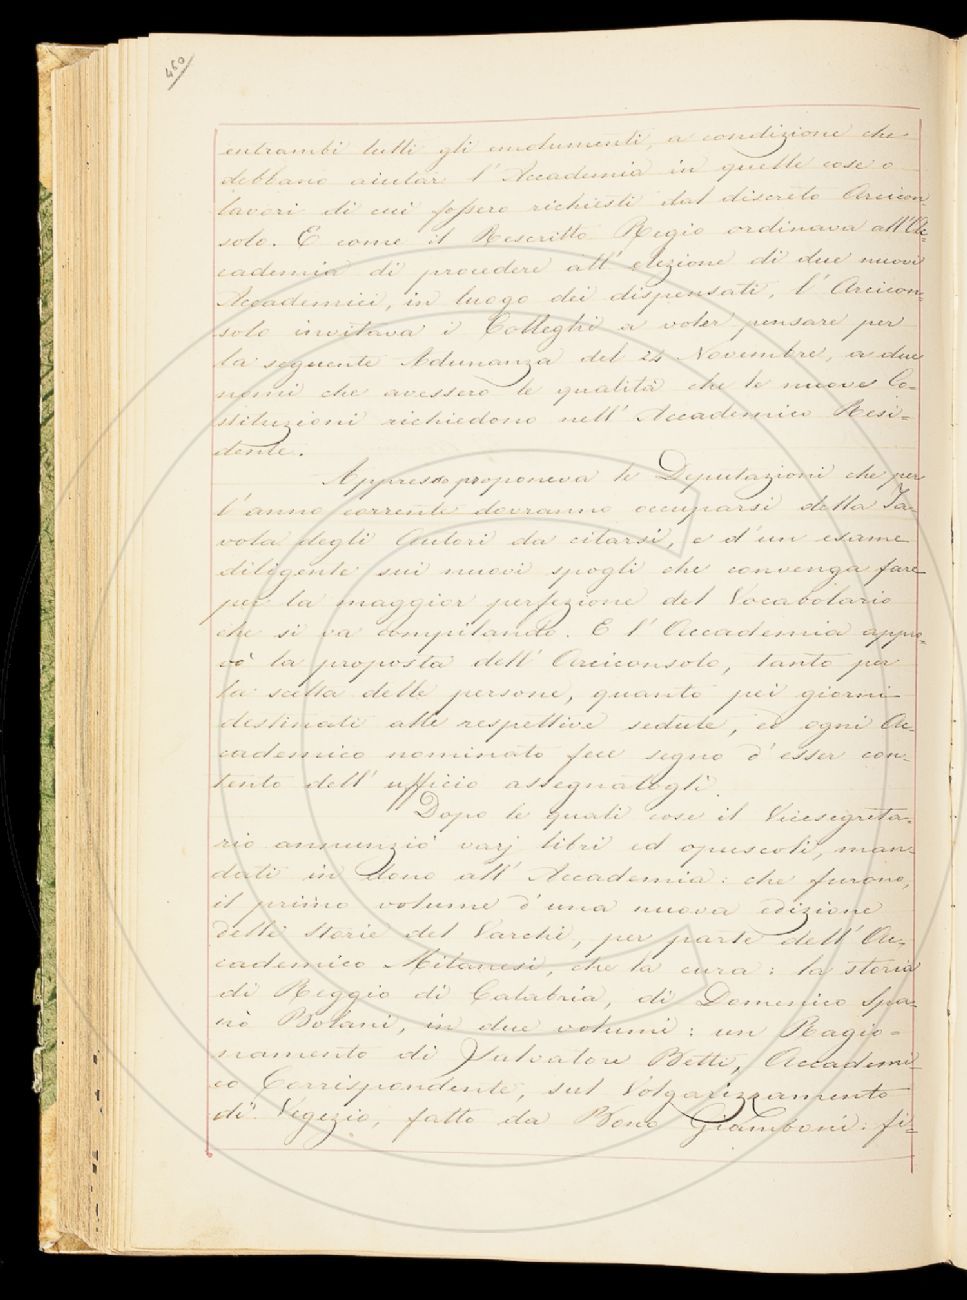 460
entrambi tutti gli emolumenti, a condizione che
debbano aiutar l'Accademia in quelle cose o
lavori di cui fossero richiesti dal discreto Arcicon-
solo. E come il Rescritto Regio ordinava all'Ac-
cademia di procedere all'elezione di due nuovi
Accademici, in luogo dei dispensati, l'Arcicon-
solo invitava i Colleghi a voler pensare per
la seguente Adunanza del 24 Novembre, a due
nomi che avessero le qualità che le nuove Co-
stituzioni richiedono nell'Accademico Resi-
dente.
Appresso proponeva le Deputazioni che per
l'anno corrente dovranno occuparsi della Ta-
vola degli Autori da citarsi, e d'un esame
diligente sui nuovi spogli che convenga fare
per la maggior perfezione del Vocabolario
che si va compilando. E l'Accademia appro-
vò la proposta dell'Arciconsolo, tanto per
la scelta delle persone, quanto pei giorni
destinati alle respettive sedute, ed ogni Ac-
cademico nominato fece segno d'esser con-
tento dell'ufficio assegnatogli.
Dopo le quali cose il Vicesegreta-
rio annunziò varj libri ed opuscoli, man-
dati in dono all'Accademia: che furono,
il primo volume d'una nuova edizione
delle Storie del Varchi, per parte dell'Ac-
cademico Milanesi, che la cura: la storia
di Reggio di Calabria, di Domenico Spa-
nò Bolani, in due volumi: un Ragio-
namento di Salvatore Betti, Accademi-
co Corrispondente, sul Volgarizzamento
di Vegezio, fatto da Bono Giamboni: fi-